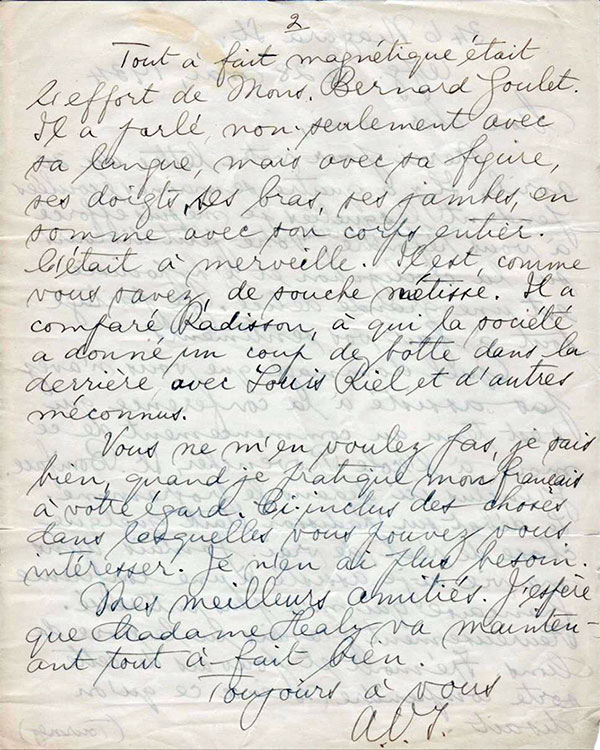 2
Tout à fait magnétique était
l'effort de Mons. Bernard Goulet.
Il a parlé, non seulement avec
sa langue, mais avec sa figure,
ses doigts, ses bras, ses jambes, en
somme avec son corps entier.
C'était à merveille. Il est, comme
vous savez, de souche métisse. Il a
comparé Radisson, à qui la société
a donné un coup de botte dans la
derrière avec Louis Riel et d'autres
méconnus.
Vous ne m'en voulez pas, je sais
bien, quand je pratique mon français
à votre égard. Ci-inclus des choses
dans lesquelles vous pouvez vous
intéresser. Je n'en ai plus besoin.
Mes meilleurs amitiés. J'espère
que Madame Healy va mainten-
ant tout à fait bien.
Toujours à vous
A.V.T.